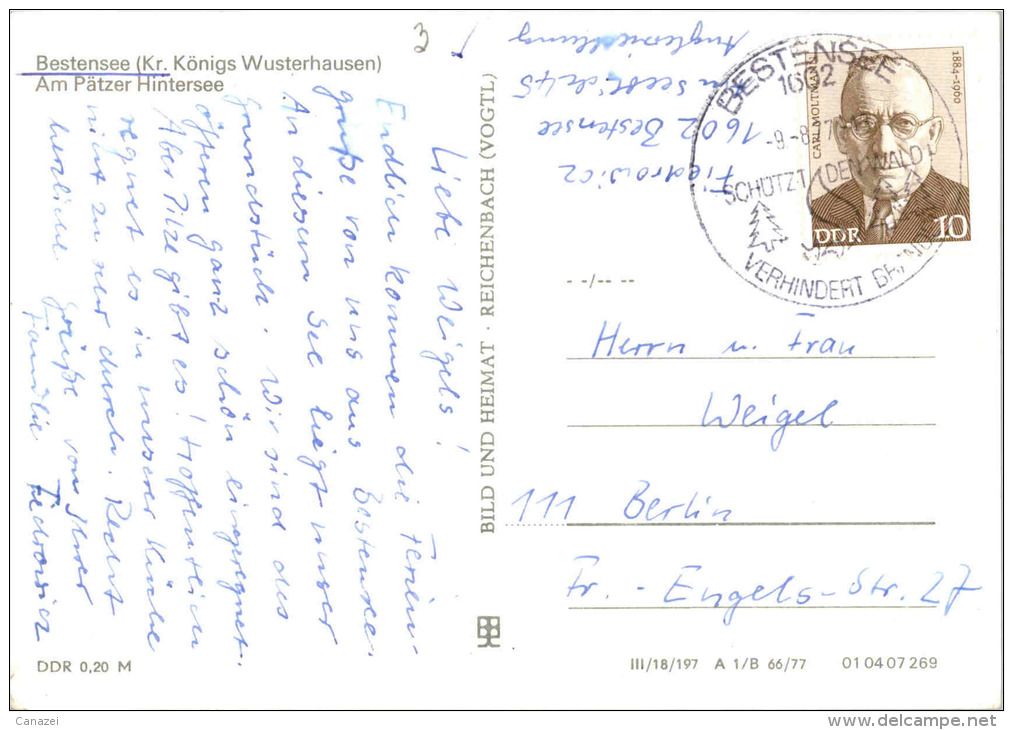 Bestensee (Kr. Königs Wusterhausen)
Am Pätzer Hintersee
3
Liebe Weigels!
Endlich kommen die Ferien-
grüße von uns aus Bestensee.
An diesem See liegt unser
Grundstück. Wir sind des
öfteren ganz schön eingeregnet.
Aber Pilze gibt es! Hoffentlich
regnet es in unserer Küche
nicht zu sehr durch. Recht
herzliche Grüße von Ihrer
Familie Fiedrowicz
BILD UND HEIMAT · REICHENBACH (VOGTL)
Fiedrowicz
1602 Bestensee
45
Anglersiedlung
BESTENSEE
1602
-9.-8.
SCHÜTZT DEN WALD
VERHINDERT
CARL MOLTMANN
1884-1960
DDR 10
--/-- --
Herrn u. Frau
Weigel
111 Berlin
Fr.-Engels-Str. 27
DDR 0,20 M
III/18/197 A 1/B 66/77 01 04 07 269
Canazei
www.delcampe.net